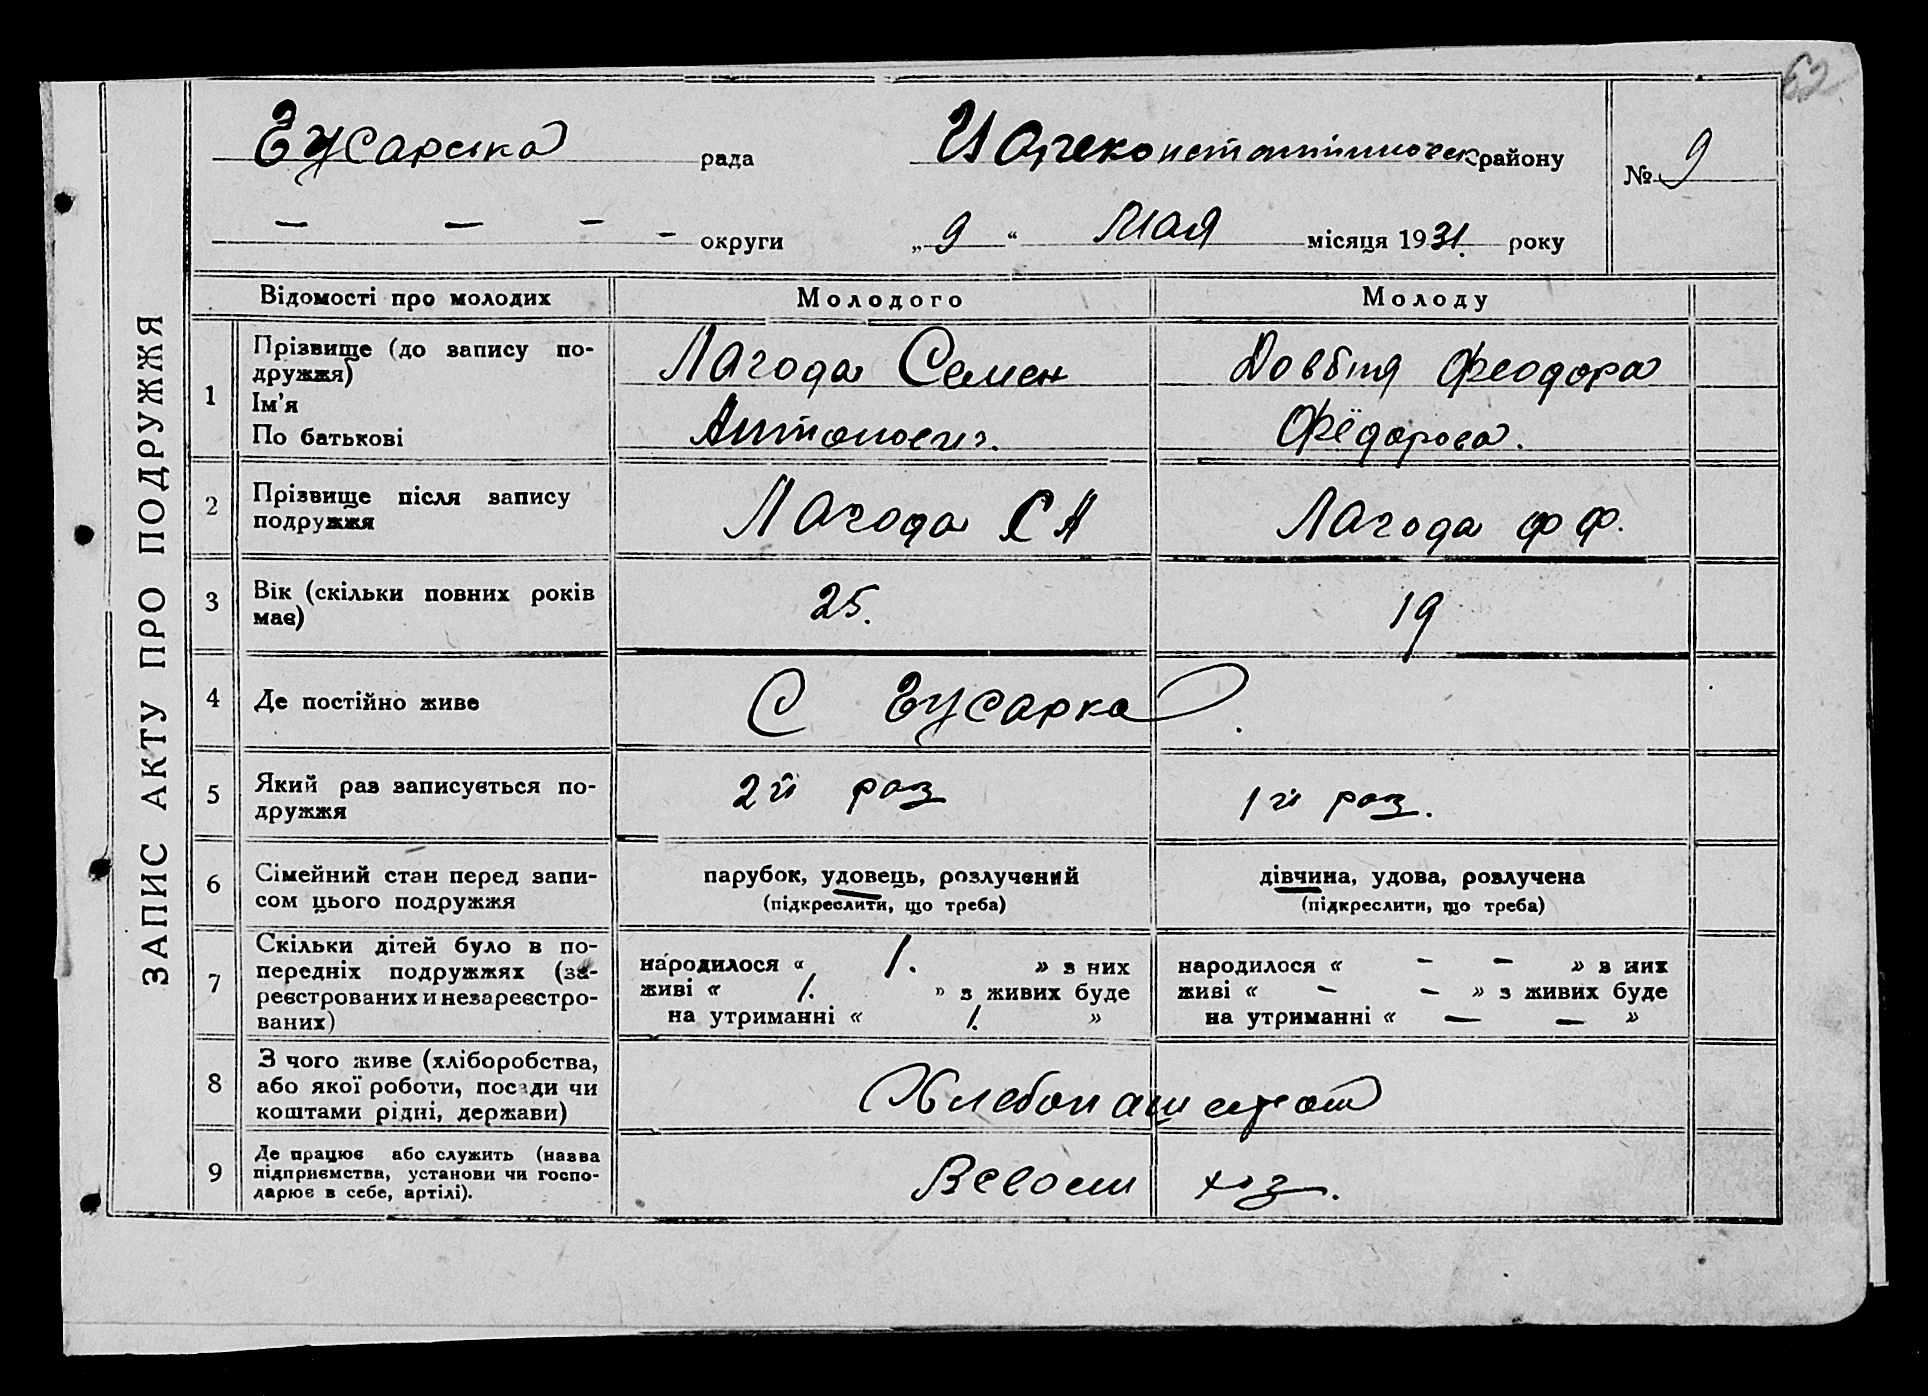 62
Гусарска рада
Цареконстантиновск району
№ 9
— — — — округи
„ 9 “ Мая місяця 1931. року
ЗАПИС АКТУ ПРО ПОДРУЖЖЯ
Відомості про молодих
Молодого
Молоду
1
Прізвище (до запису по-
дружжя)
Ім'я
По батькові
Лагода Семен
Антонович.
Довбня Феодора
Фёдорова.
2
Прізвище після запису
подружжя
Лагода С А
Лагода Ф Ф.
3
Вік (скільки повних років
має)
25.
19
4
Де постійно живе
С Гусарка.
5
Який раз записується по-
дружжя
2й раз
1й раз.
6
Сімейний стан перед запи-
сом цього подружжя
парубок, удовець, розлучений
(підкреслити, що треба)
дівчина, удова, розлучена
(підкреслити, що треба)
7
Скільки дітей було в по-
передніх подружжях (за-
реєстрованих и незареєстро-
ваних)
народилося « 1. » з них
живі « 1. » з живих буде
на утриманні « 1. »
народилося « — — » з них
живі « — — » з живих буде
на утриманні « — — »
8
З чого живе (хліборобства,
або якої роботи, посади чи
коштами рідні, держави)
Хлебопашеством
9
Де працює або служить (назва
підприємства, установи чи госпо-
дарює в себе, артілі).
В своем хоз.